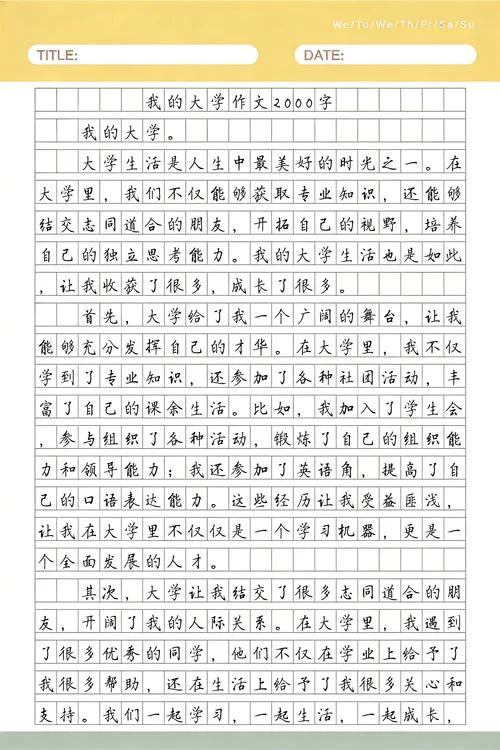 We/Tu/We/Th/Fr/Sa/Su
TITLE:
DATE:
我的大学作文2000字
我的大学。
大学生活是人生中最美好的时光之一。在
大学里，我们不仅能够获取专业知识，还能够
结交志同道合的朋友，开拓自己的视野，培养
自己的独立思考能力。我的大学生活也是如此
，让我收获了很多，成长了很多。
首先，大学给了我一个广阔的舞台，让我
能够充分发挥自己的才华。在大学里，我不仅
学到了专业知识，还参加了各种社团活动，丰
富了自己的课余生活。比如，我加入了学生会
，参与组织了各种活动，锻炼了自己的组织能
力和领导能力；我还参加了英语角，提高了自
己的口语表达能力。这些经历让我受益匪浅，
让我在大学里不仅仅是一个学习机器，更是一
个全面发展的人才。
其次，大学让我结交了很多志同道合的朋
友，开阔了我的人际关系。在大学里，我遇到
了很多优秀的同学，他们不仅在学业上给予了
我很多帮助，还在生活上给予了我很多关心和
支持。我们一起学习，一起生活，一起成长，